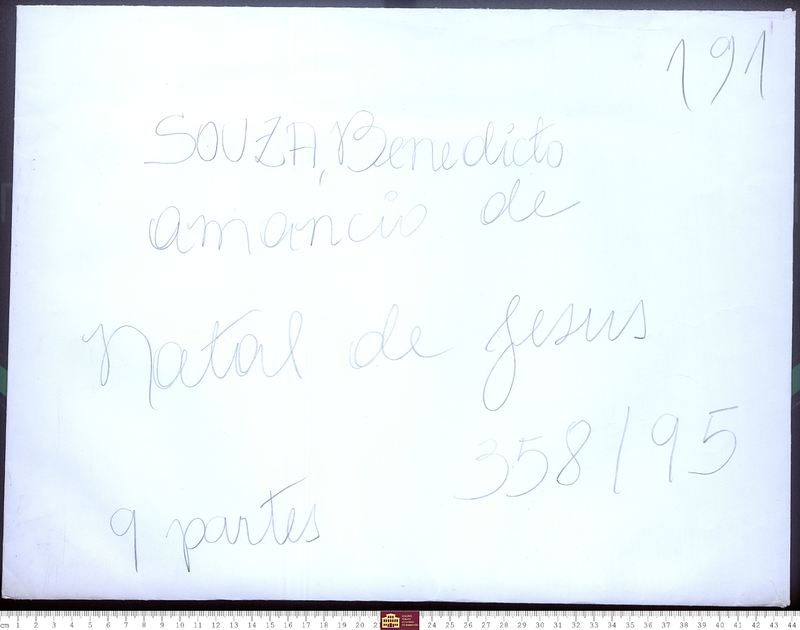 191
SOUZA, Benedicto
Amancio de
Natal de Jesus
358/95
9 partes
cm 1 2 3 4 5 6 7 8 9 10 11 12 13 14 15 16 17 18 19 20 2 24 25 26 27 28 29 30 31 32 33 34 35 36 37 38 39 40 41 42 43 44